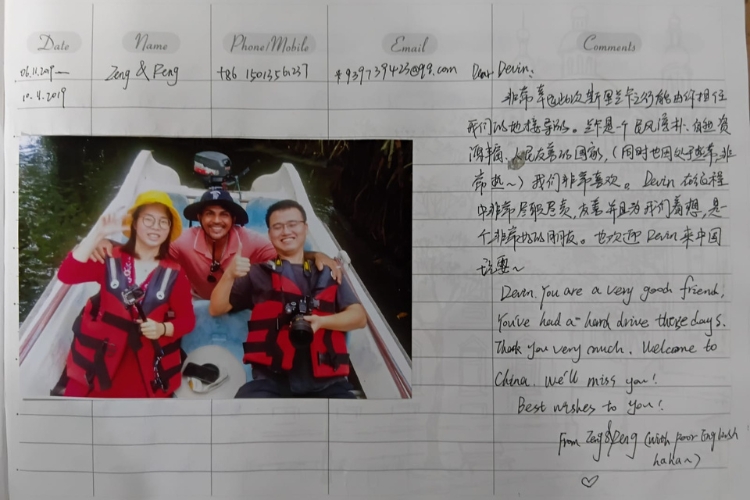 Date Name Phone/Mobile Email Comments
Zeng & Peng +86 15013561237 Dear Devin:
10.4.2019
非常幸运此次斯里兰卡之行能由你担任
我们的地接导游。兰卡是一个民风淳朴、自然资
源丰富、人民友善的国家,(同时也因处于热带,非
常热~)我们非常喜欢。Devin 在旅程
中非常尽职尽责,友善并且为我们着想,是
个非常好的朋友。也欢迎Devin来中国
玩~
Devin. You are a very good friend.
You've had a hard drive these days.
Thank you very much. Welcome to
China. We'll miss you!
Best wishes to you!
From Zeng&Peng (with poor English
haha~)